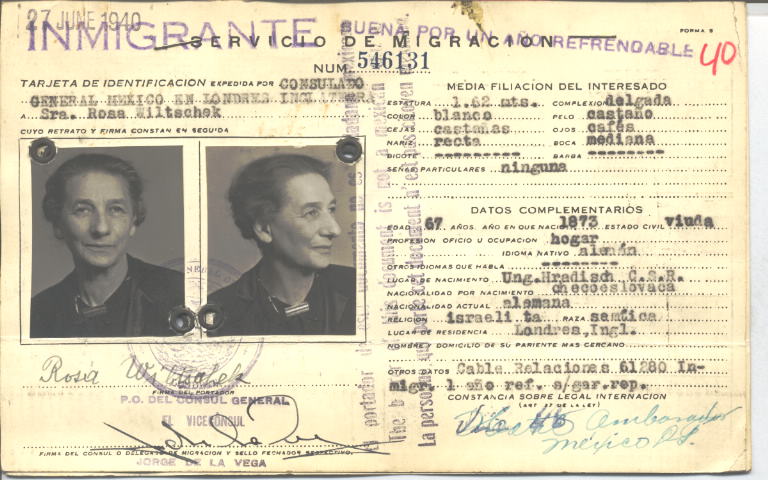 27 JUNE 1940
INMIGRANTE
BUENA POR UN AÑO REFRENDABLE
FORMA 5
SERVICIO DE MIGRACION
40
NUM. 546131
TARJETA DE IDENTIFICACION EXPEDIDA POR CONSULADO
GENERAL MEXICO EN LONDRES INGLATERRA
A Sra. Rosa Wiltschek
CUYO RETRATO Y FIRMA CONSTAN EN SEGUIDA
MEDIA FILIACION DEL INTERESADO
ESTATURA 1.62 mts. COMPLEXION delgada
COLOR blanco PELO castaño
CEJAS castañas OJOS cafés
NARIZ recta BOCA mediana
BIGOTE --------- BARBA --------
SEÑAS PARTICULARES ninguna
DATOS COMPLEMENTARIOS
EDAD 67 AÑOS. AÑO EN QUE NACIO 1873 ESTADO CIVIL viuda
PROFESION OFICIO U OCUPACION hogar
IDIOMA NATIVO alemán
OTROS IDIOMAS QUE HABLA --------
LUGAR DE NACIMIENTO Ung.Hradisch C.S.R.
NACIONALIDAD POR NACIMIENTO checoeslovaca
NACIONALIDAD ACTUAL alemana
RELIGION israelita RAZA semítica
LUGAR DE RESIDENCIA Londres,Ingl.
NOMBRE Y DOMICILIO DE SU PARIENTE MAS CERCANO
OTROS DATOS Cable Relaciones 61280 In-
migr. 1 año ref. s/gar.rep.
CONSTANCIA SOBRE LEGAL INTERNACION
(ART. 37 DE LA LEY)
Ambarador
México D.F.
Rosa Wiltschek
FIRMA DEL PORTADOR
P.O. DEL CONSUL GENERAL
EL VICECONSUL
FIRMA DEL CONSUL O DELEGADO DE MIGRACION Y SELLO FECHADOR RESPECTIVO.
JORGE DE LA VEGA